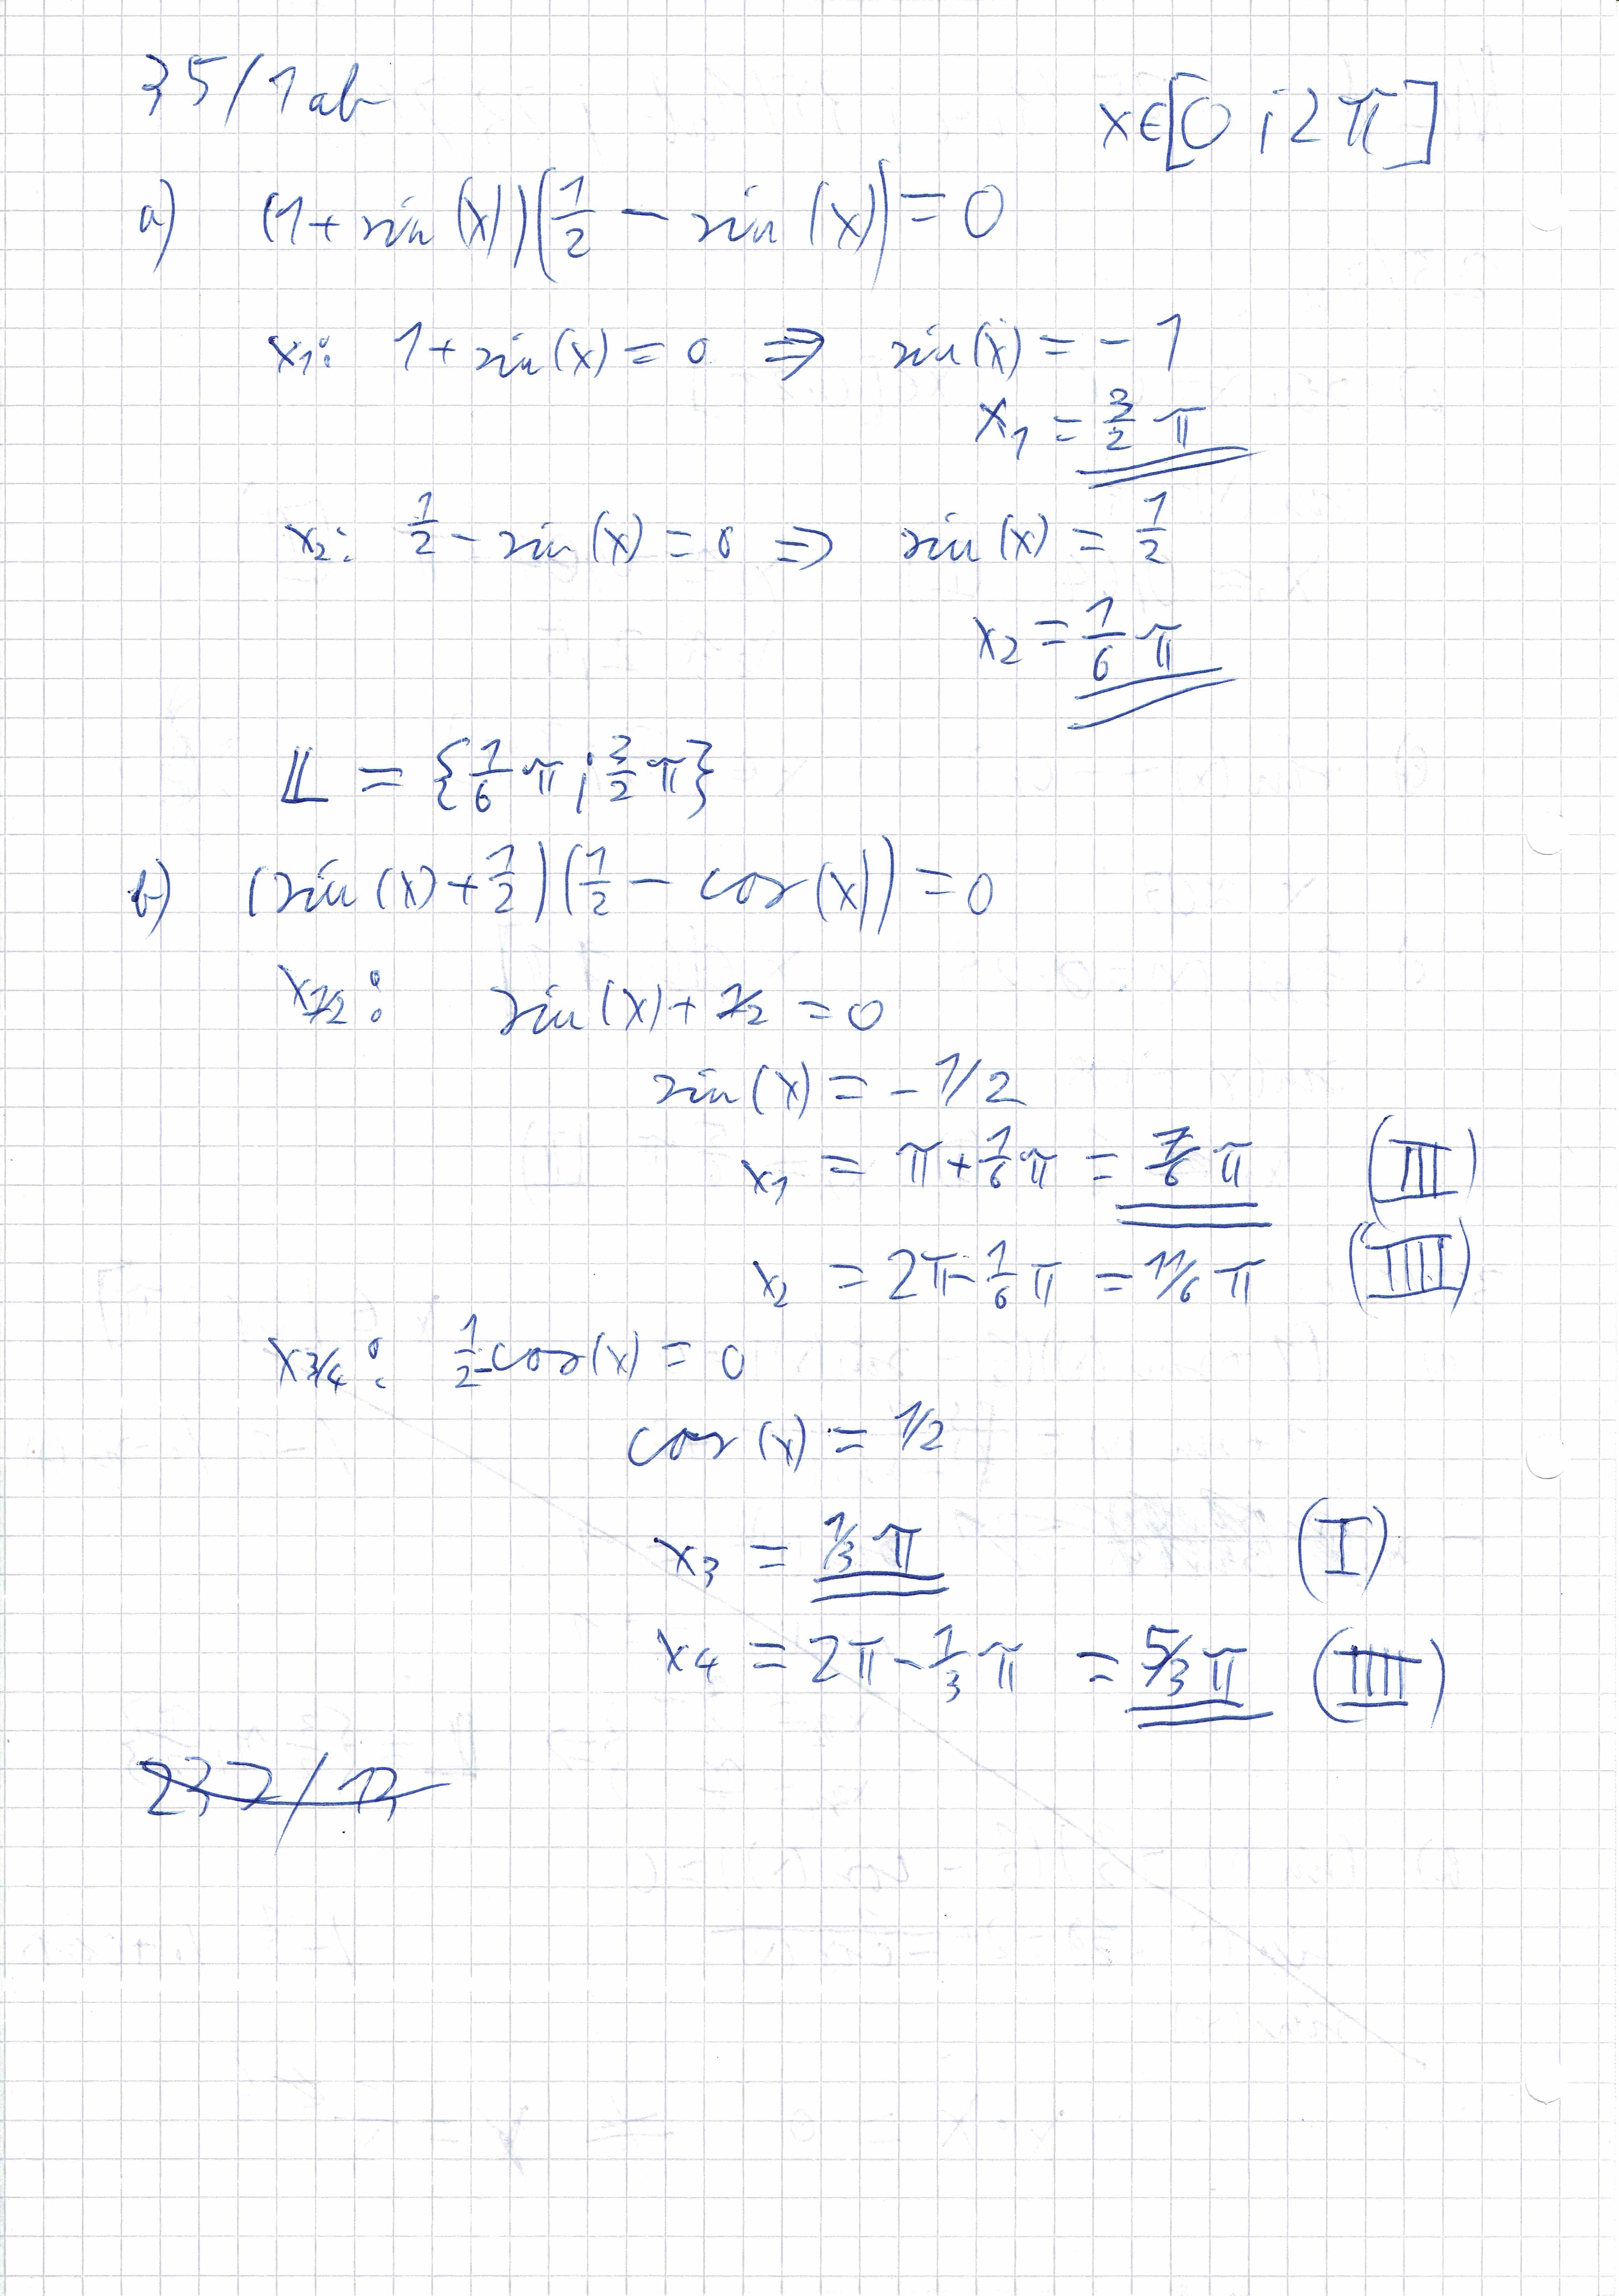 35/1ab
x∈[0;2π]
a) (1+sin(x))(1/2 − sin(x))=0
x₁: 1+sin(x)=0 ⇒ sin(x)=−1
x₁ = 3/2 π
x₂: 1/2 − sin(x)=0 ⇒ sin(x)=1/2
x₂ = 1/6 π
𝕃 = {1/6 π; 3/2 π}
b) (sin(x)+1/2)(1/2 − cos(x))=0
x1/2: sin(x)+1/2=0
sin(x)=−1/2
x₁ = π+1/6π = 7/6 π (III)
x₂ = 2π−1/6π = 11/6 π (IIII)
x3/4: 1/2−cos(x)=0
cos(x)=1/2
x₃ = 1/3 π (I)
x₄ = 2π−1/3π = 5/3 π (IIII)